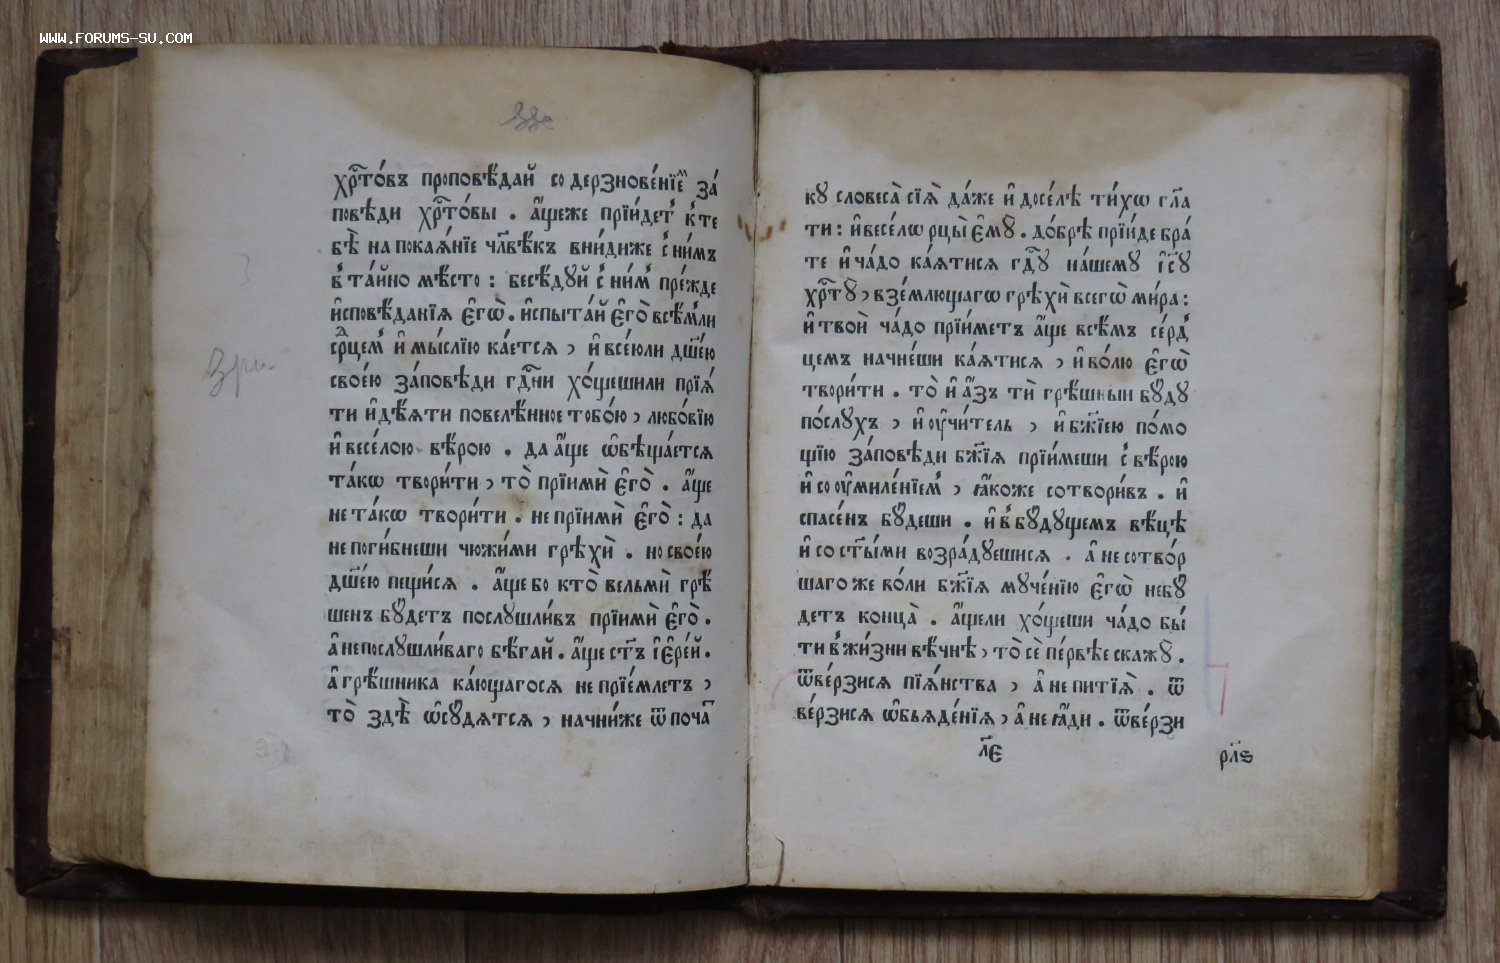 WWW.FORUMS-SU.COM
хрⷭ҇то́въ проповѣ́дай со дерзнове́нїеⷨ за́
повѣди хрⷭ҇то́вы . а҆́щеже прїи́детъ к̾те
бѣ̀ на покаѧ́нїе чл҃вѣ́къ вни́диже с̾ни́мъ
в̾та́йно мѣ́сто : бесѣ́дꙋй с̾ни́м̾ пре́жде
и҆сповѣ́данїѧ є҆гѡ̀ . и҆спыта́й є҆го̀ всѣ́м̾ли
срⷣцем̾ и҆ мы́слїю ка́етсѧ , и҆ все́юли дш҃е́ю
свое́ю за́повѣди гдⷭ҇ни хо́щешили прїѧ́
ти и҆ дѣ́ѧти повелѣ́нное тобо́ю , любо́вїю
и҆ весе́лою вѣ́рою . да а҆́ще ѡ҆бѣща́етсѧ
та́кѡ твори́ти , то̀ прїимѝ є҆го̀ . а҆́ще
не та́кѡ твори́ти . не прїимѝ є҆го̀ : да
не поги́бнеши чюжи́ми грѣхѝ . но свое́ю
дш҃е́ю пещи́сѧ . а҆́ще бо кто̀ вельмѝ грѣ́
шенъ бꙋ́детъ послꙋшли́въ прїимѝ є҆го̀ .
а҆ непослꙋшли́ваго бѣ́гай . а҆́ще ст҃ъ і҆ере́й .
а҆ грѣ́шника ка́ющагосѧ не прїе́млетъ ,
то̀ здѣ̀ ѡ҆сꙋ́дѧтсѧ , начни́же ѿ поча́
кꙋ словеса̀ сїѧ̀ да́же и҆ досе́лѣ ти́хѡ гл҃а
ти : и҆ весе́лѡ рцы̀ є҆мꙋ̀ . до́брѣ прїи́де бра́
те и҆ ча́до ка́ѧтисѧ гдⷭ҇ꙋ на́шемꙋ і҆сꙋ
хрⷭ҇тꙋ̀ , взе́млющагѡ грѣхѝ всегѡ̀ ми́ра :
и҆ твоѝ ча́до прїи́метъ а҆́ще всѣ́мъ се́рд̾
цемъ начне́ши ка́ѧтисѧ , и҆ во́лю є҆гѡ̀
твори́ти . то̀ и҆ а҆́зъ тѝ грѣ́шный бꙋ́дꙋ
по́слꙋхъ , и҆ ᲂу҆чи́тель , и҆ бж҃їею по́мо
щїю за́повѣди бж҃їѧ прїи́меши с̾ вѣ́рою
и҆ со ᲂу҆миле́нїем̾ , ꙗ҆́коже сотвори́въ . и҆
спасе́нъ бꙋ́деши . и҆ в̾ бꙋ́дꙋщемъ вѣ́цѣ
и҆ со ст҃ы́ми возра́дꙋешисѧ . а҆ не сотво́р
шаго же во́ли бж҃їѧ мꙋче́нїю є҆гѡ̀ небꙋ́
детъ конца̀ . а҆́щели хо́щеши ча́до бы́
ти в̾жи́зни вѣ́чнѣ , то̀ сѐ пе́рвѣе скажꙋ̀ .
ѿве́рзисѧ пїѧ́нства , а҆ не питїѧ̀ . ѿ
ве́рзисѧ ѡ҆бьѧде́нїѧ , а҆ не ꙗ҆́ди . ѿве́рзи
л҃є
рл҃ѕ
Зри